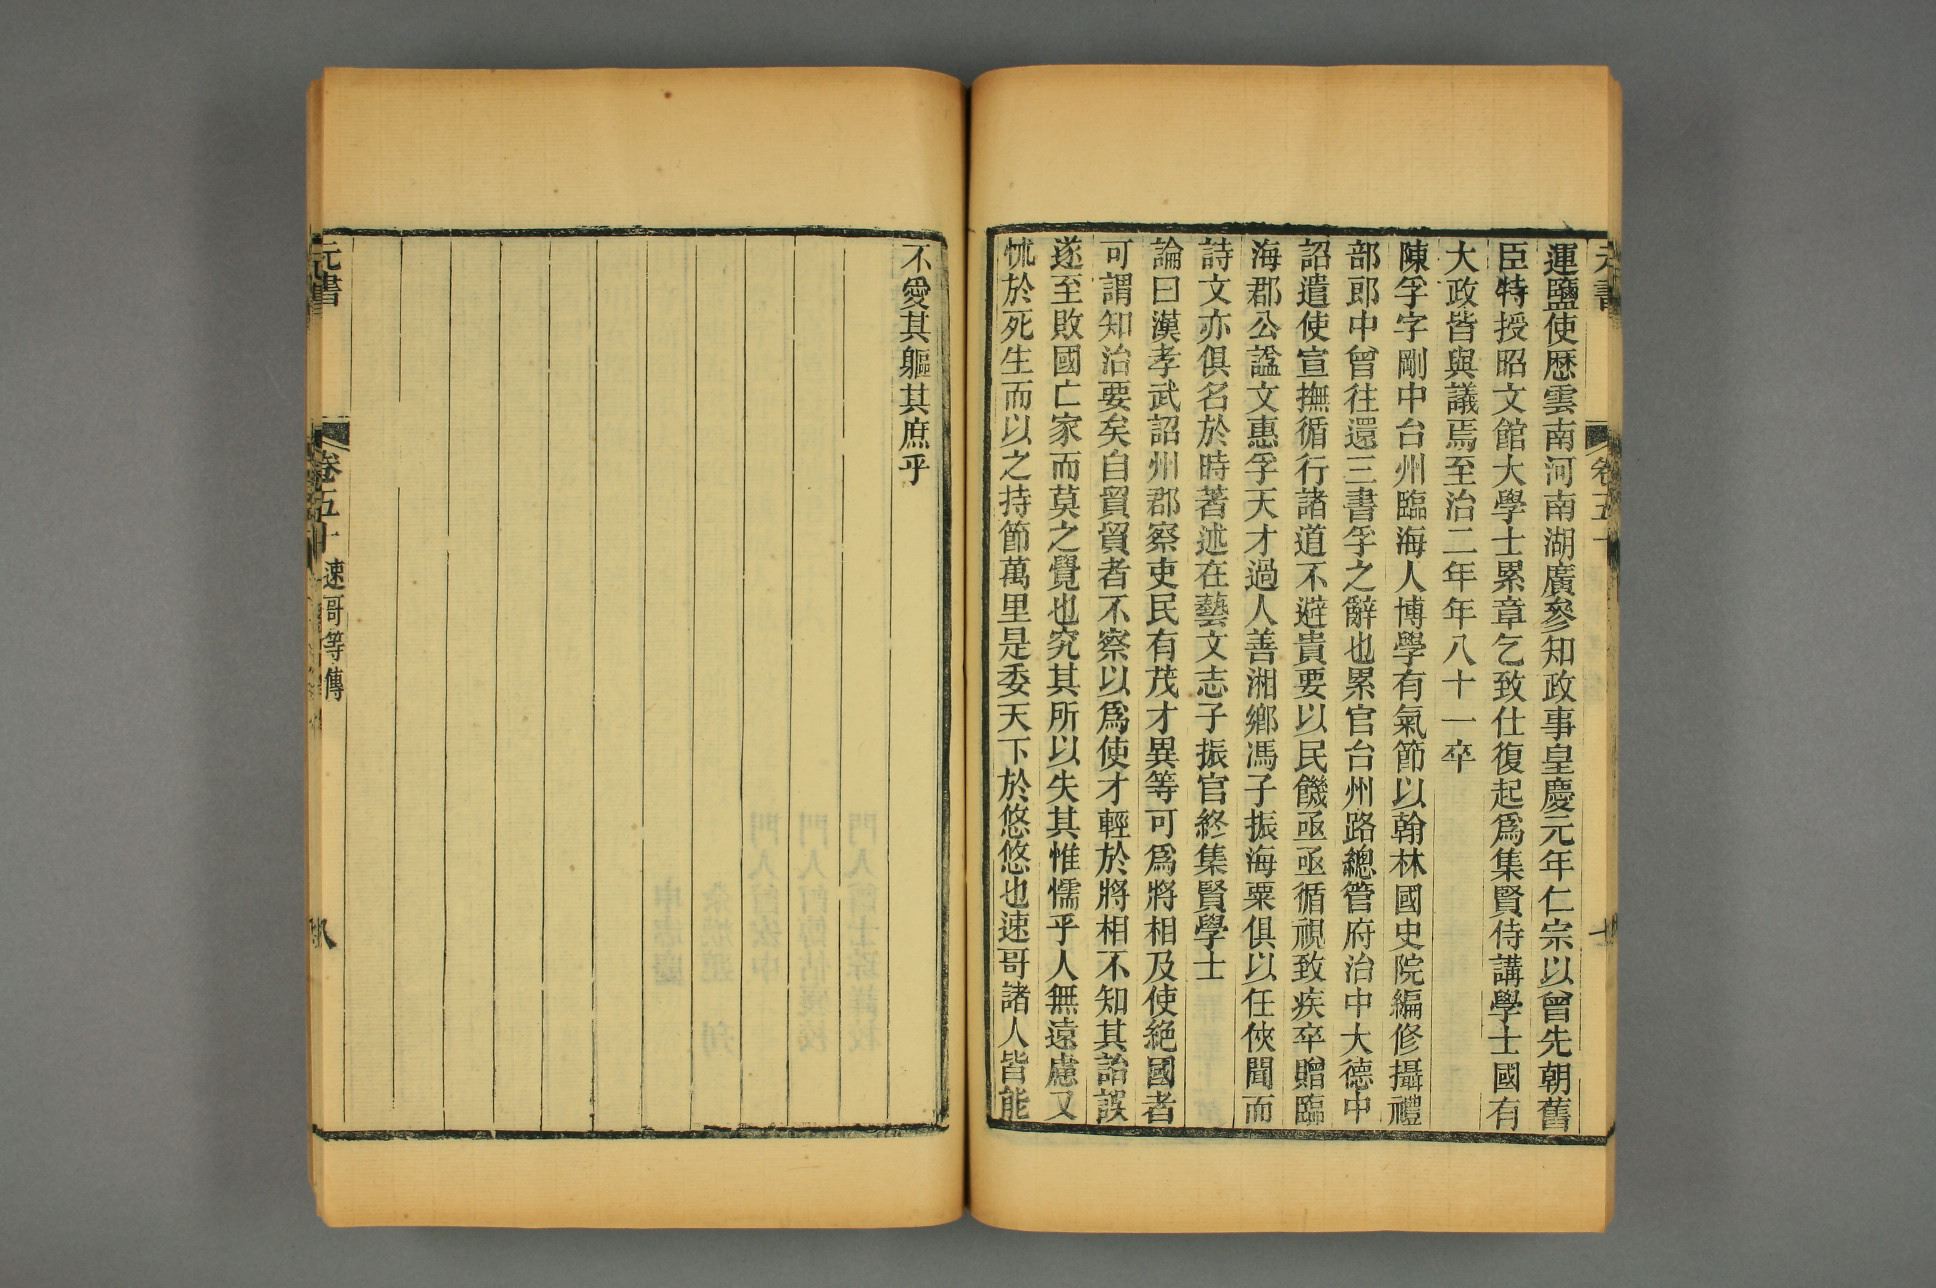 元書
卷五十
七
運鹽使歷雲南河南湖廣參知政事皇慶元年仁宗以曾先朝舊
臣特授昭文館大學士累章乞致仕復起爲集賢侍講學士國有
大政皆與議焉至治二年年八十一卒
陳孚字剛中台州臨海人博學有氣節以翰林國史院編修攝禮
部郎中曾往還三書孚之辭也累官台州路總管府治中大德中
詔遣使宣撫循行諸道不避貴要以民饑亟亟循視致疾卒贈臨
海郡公諡文惠孚天才過人善湘鄉馮子振海粟俱以任俠聞而
詩文亦俱名於時著述在藝文志子振官終集賢學士
論曰漢孝武詔州郡察吏民有茂才異等可爲將相及使絕國者
可謂知治要矣自貿貿者不察以爲使才輕於將相不知其詒誤
遂至敗國亡家而莫之覺也究其所以失其惟懦乎人無遠慮又
怵於死生而以之持節萬里是委天下於悠悠也速哥諸人皆能
不愛其軀其庶乎
元書
卷五十
速哥等傳
八